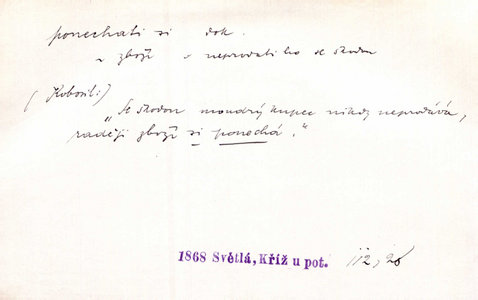 ponechati si dok.
~ zboží = neprodati ho se škodou
(Kobosil:)
„Se škodou moudrý kupec nikdy neprodává,
raději zboží si ponechá."
1868 Světlá, Kříž u pot. 112, 26